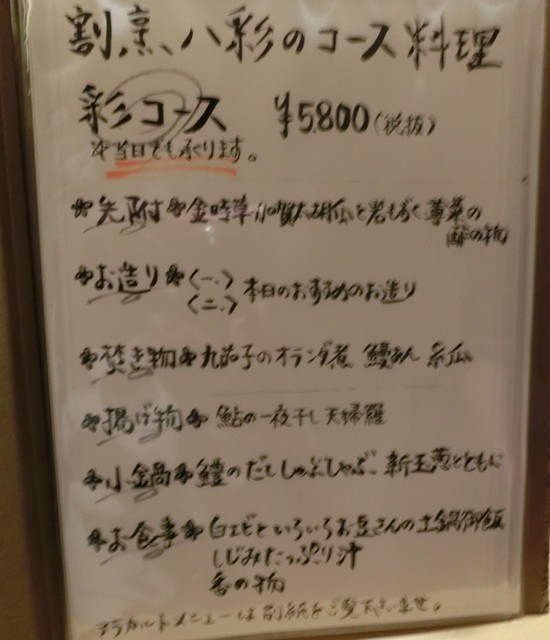 割烹、八彩のコース料理
彩コース ¥5.800(税抜)
※当日でも承ります。
先附 金時草 加賀太胡瓜と岩もずく 蓴菜の
酢の物
お造り 〈一、〉
〈二、〉 本日のおすすめのお造り
焚き物 丸茄子のオランダ煮 鰻あん 糸瓜
揚げ物 鮎の一夜干し天婦羅
小鍋 鱧のだししゃぶしゃぶ、新玉葱とともに
お食事 白エビといろいろお豆さんの土鍋御飯
しじみたっぷり汁
香の物
アラカルトメニューは別紙をご覧下さいませ。